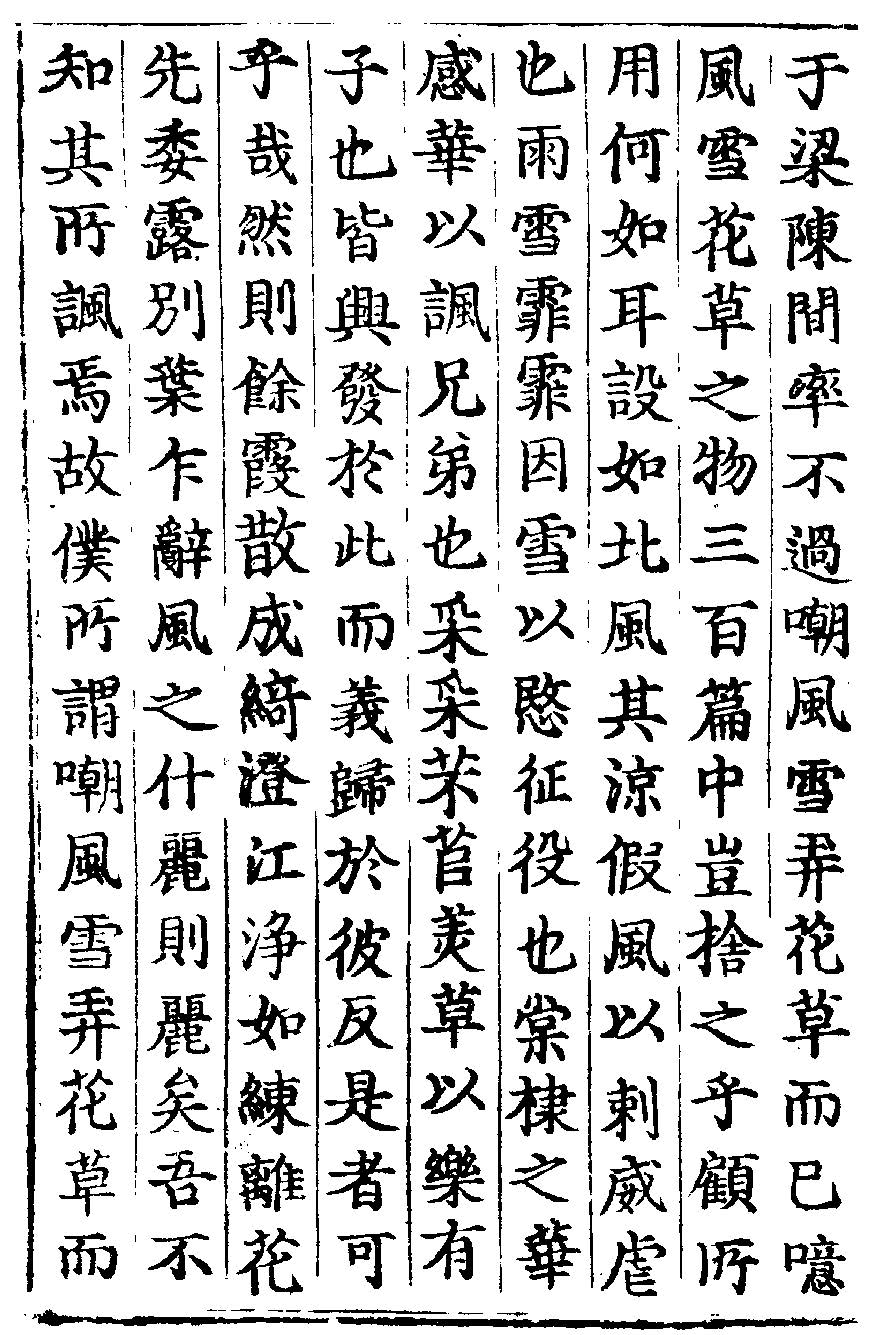 于梁陳間率不過嘲風雪弄花草而已噫
風雪花草之物三百篇中豈捨之乎顧所
用何如耳設如北風其涼假風以刺威虐
也雨雪霏霏因雪以愍征役也棠棣之華
感華以諷兄弟也采采芣苢美草以樂有
子也皆興發於此而義歸於彼反是者可
乎哉然則餘霞散成綺澄江浄如練離花
先委露別葉乍辭風之什麗則麗矣吾不
知其所諷焉故僕所謂嘲風雪弄花草而